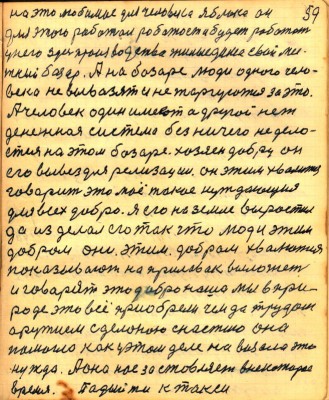 на это любимые для человека яблока он 59
для этого работал работает и будет работат
у него эти производства жизнеданые свой ме-
лкий базар. А на базаре люди одного чело-
века не вывозят и не таргуются за это.
А человек один имеет а другой нет
денежная система без ничего не дело-
ется на этом базаре. хозяен добру он
его вывез для реализации. он этим хвалится
говорит это моё такое нуждающия
для всех добро. Я его на земле выростил
да из делал его так что люди этим
добром они. этим. добрам хвалются
показывают на прилавак выложет
и говарят это добро наша мы в при-
роде это всё приобрели чем да трудом
а руками сделоною снастию она
помогло как у этом деле на вязала это
нужда. А она нас заставляет в некоторое
время. падыйти к такси